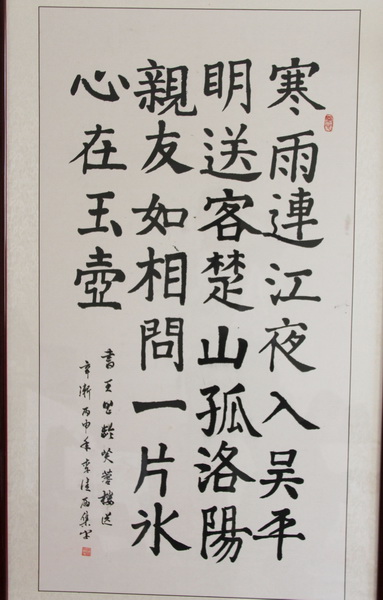 寒雨連江夜入吴平
明送客楚山孤洛陽
親友如相問一片氷
心在玉壺
書王昌龄芙蓉樓送
辛漸丙申年李